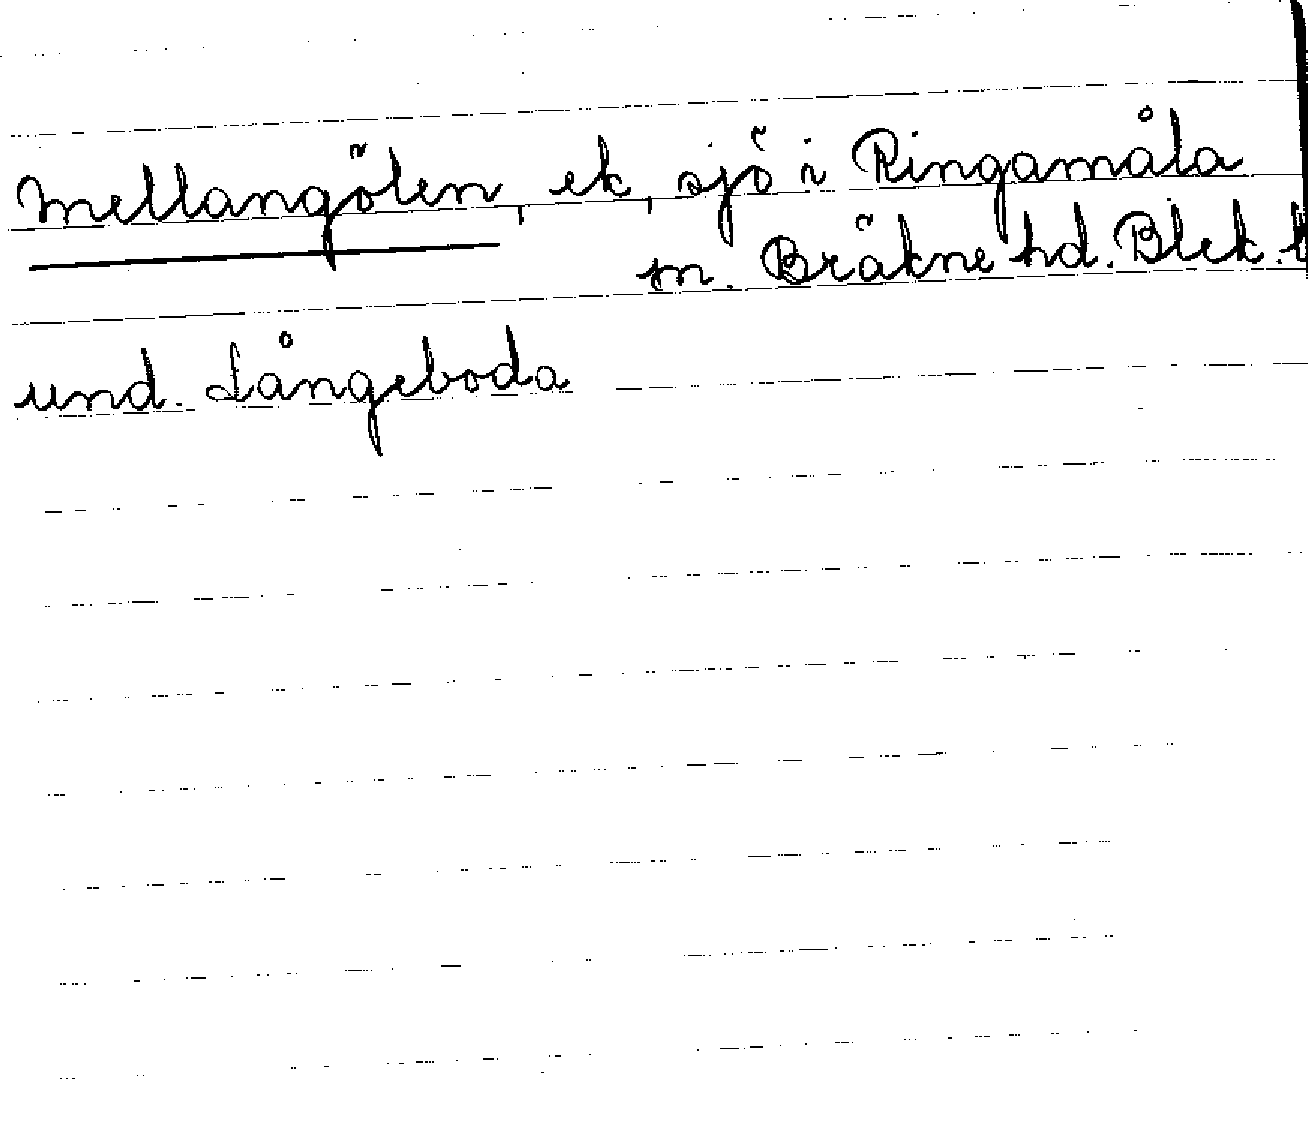 Mellangölen, ek, sjö i Ringamåla
sn. Bräkne hd. Blek. l
und. Långeboda